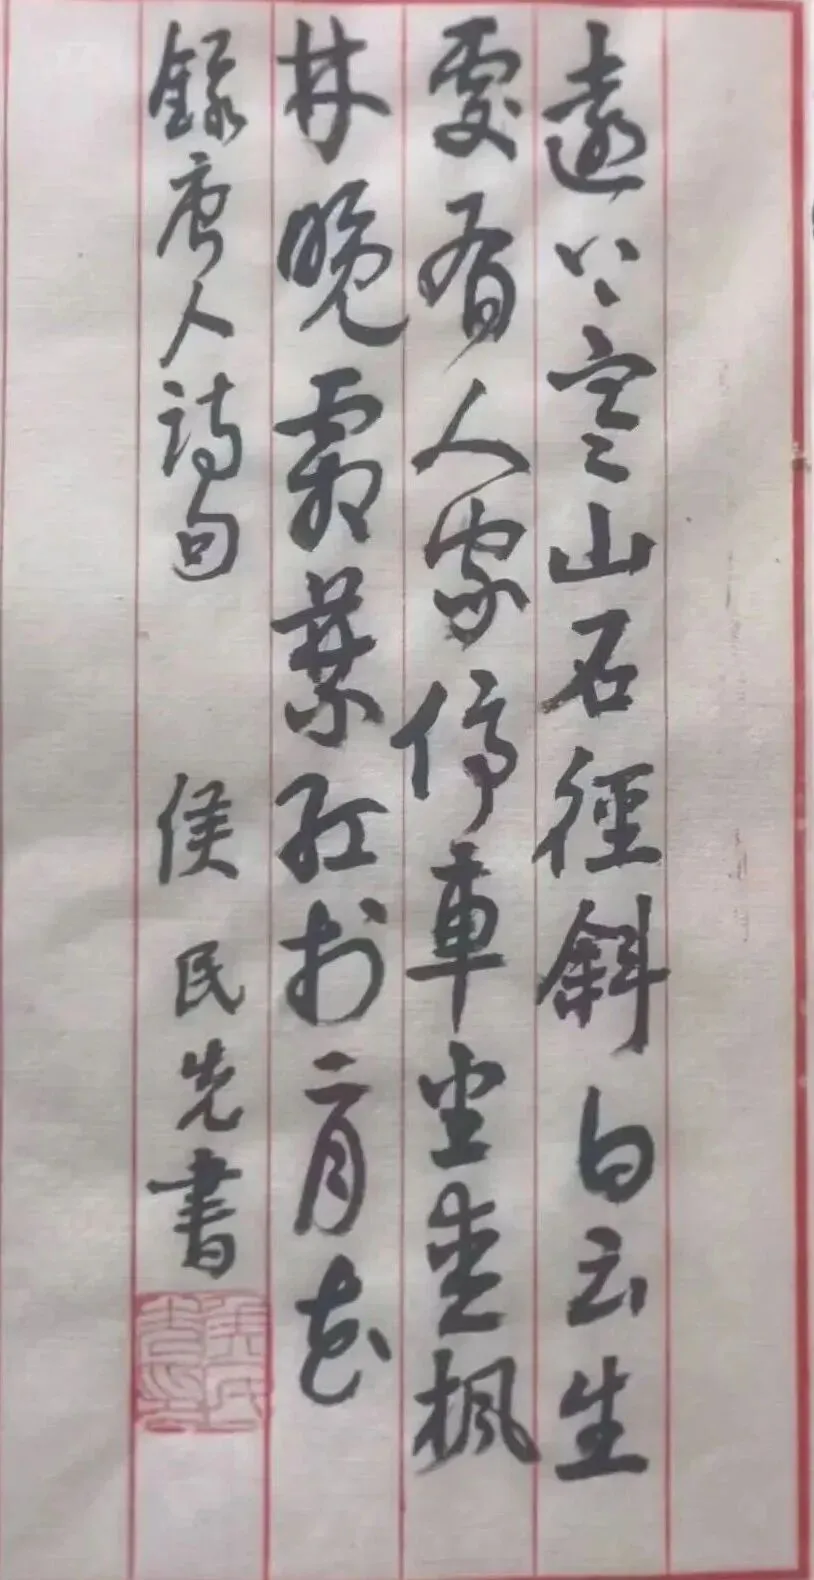 遠上寒山石徑斜白云生
處有人家停車坐愛楓
林晚霜葉紅於二月花
錄唐人詩句 侯民先書